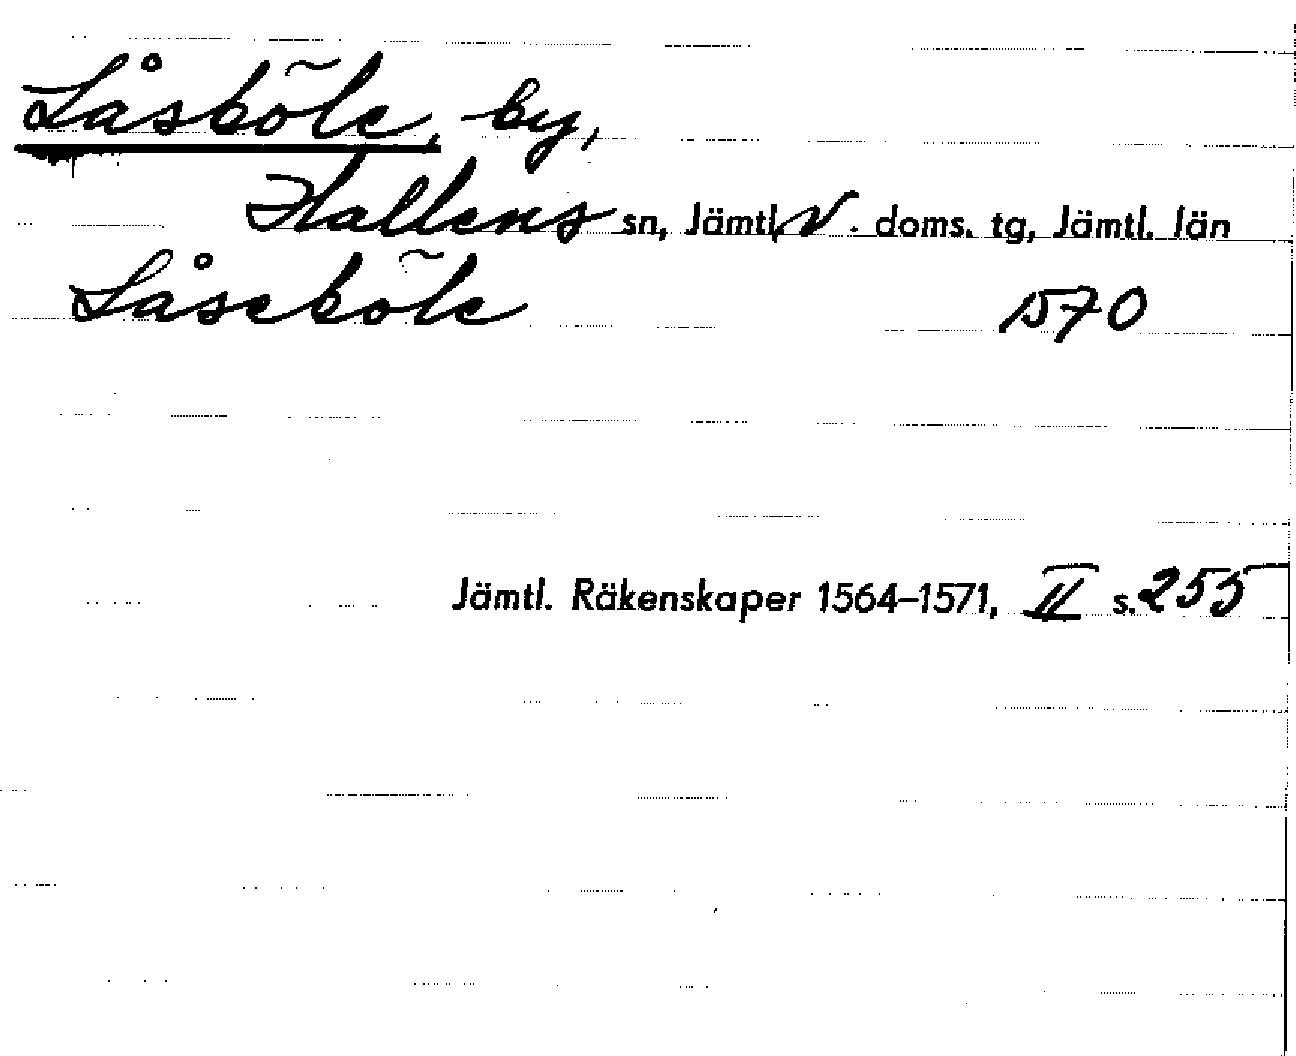 Låsböle, by,
Hallens sn, Jämtl. V. doms. tg, Jämtl. län
Låseböle 1570
Jämtl. Räkenskaper 1564–1571, II s. 255